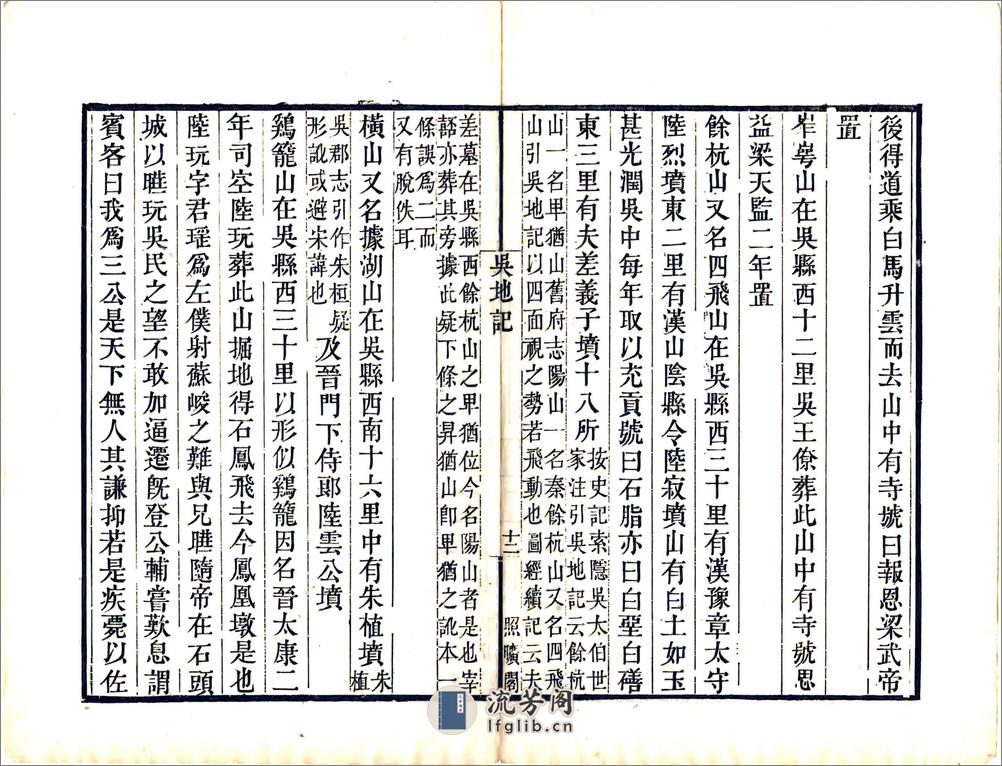 後得道乘白馬升雲而去山中有寺號曰報恩梁武帝
置
岝㟧山在吳縣西十二里吳王僚葬此山中有寺號思
益梁天監二年置
餘杭山又名四飛山在吳縣西三十里有漢豫章太守
陸烈墳東二里有漢山陰縣令陸寂墳山有白土如玉
甚光潤吳中每年取以充貢號曰石脂亦曰白堊白磰
東三里有夫差義子墳十八所按史記索隱吳太伯世
家注引吳地記云餘杭
山一名卑猶山舊府志陽山一名秦餘杭山又名四飛
山引吳地記以四面視之勢若飛動也圖經續記云夫
吳地記 十二 照曠閣
差墓在吳縣西餘杭山之卑猶位今名陽山者是也宰
嚭亦葬其旁據此疑下條之昇猶山卽卑猶之訛本一
條誤爲二而
又有脫佚耳
橫山又名據湖山在吳縣西南十六里中有朱植墳朱
植
吳郡志引作朱桓疑
形訛或避宋諱也
及晉門下侍郞陸雲公墳
鷄籠山在吳縣西三十里以形似鷄籠因名晉太康二
年司空陸玩葬此山掘地得石鳳飛去今鳳凰墩是也
陸玩字君瑤爲左僕射蘇峻之難與兄曄隨帝在石頭
城以曄玩吳民之望不敢加逼遷旣登公輔嘗歎息謂
賓客曰我爲三公是天下無人其謙抑若是疾薨以佐
流芳阁
lfglib.cn